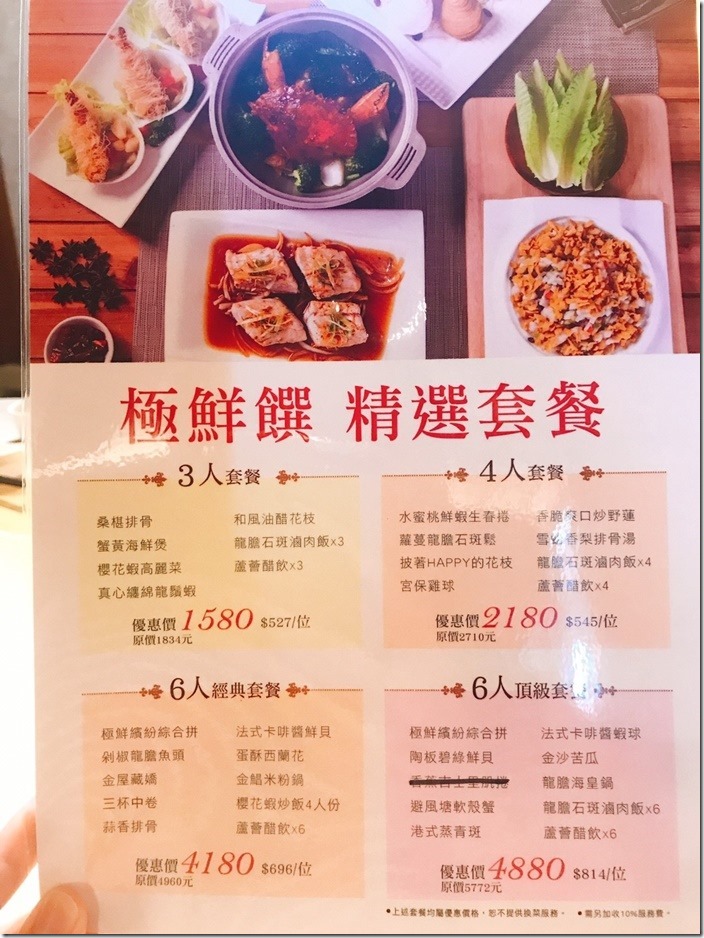 極鮮饌 精選套餐
3人套餐
桑椹排骨
蟹黃海鮮煲
櫻花蝦高麗菜
真心纏綿龍鬚蝦
和風油醋花枝
龍膽石斑滷肉飯x3
蘆薈醋飲x3
優惠價1580 $527/位
原價1834元
4人套餐
水蜜桃鮮蝦生春捲
蘿蔓龍膽石斑鬆
披著HAPPY的花枝
宮保雞球
香脆爽口炒野蓮
香梨排骨湯
龍膽石斑滷肉飯x4
蘆薈醋飲x4
優惠價2180 $545/位
原價2710元
6人經典套餐
極鮮繽紛綜合拼
剁椒龍膽魚頭
金屋藏嬌
三杯中卷
蒜香排骨
法式卡啡醬鮮貝
蛋酥西蘭花
金鯧米粉鍋
櫻花蝦炒飯4人份
蘆薈醋飲x6
優惠價4180 $696/位
原價4960元
6人頂級套餐
極鮮繽紛綜合拼
陶板碧綠鮮貝
避風塘軟殼蟹
港式蒸青斑
法式卡啡醬蝦球
金沙苦瓜
龍膽海皇鍋
龍膽石斑滷肉飯x6
蘆薈醋飲x6
優惠價4880 $814/位
原價5772元
●上述套餐均屬優惠價格，恕不提供換菜服務。 ●需另加收10%服務費。